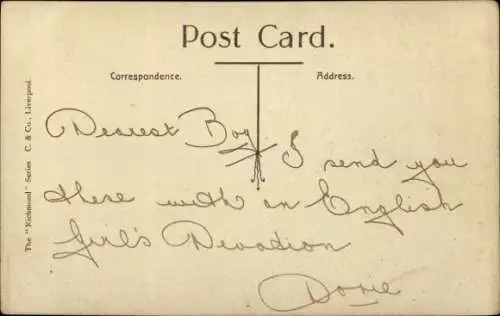 Post Card.
Correspondence. Address.
The "Richmond" Series C. & Co., Liverpool.
Dearest Boy
I send you
these with an English
Girl's Devotion
Dorie